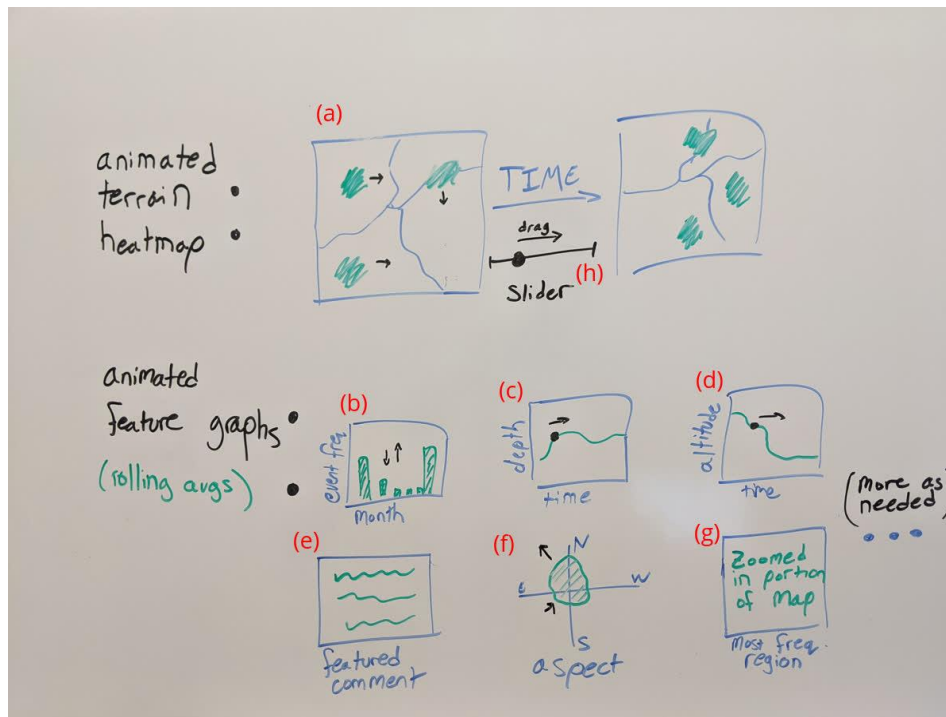 (a)
animated
terrain
heatmap
TIME
drag
(h)
Slider
animated
feature graphs
(rolling avgs)
(b)
event freq.
month
(c)
depth
time
(d)
altitude
time
(more as
needed)
...
(e)
featured
comment
(f)
N
E
W
S
aspect
(g)
Zoomed
in portion
of Map
Most freq.
region